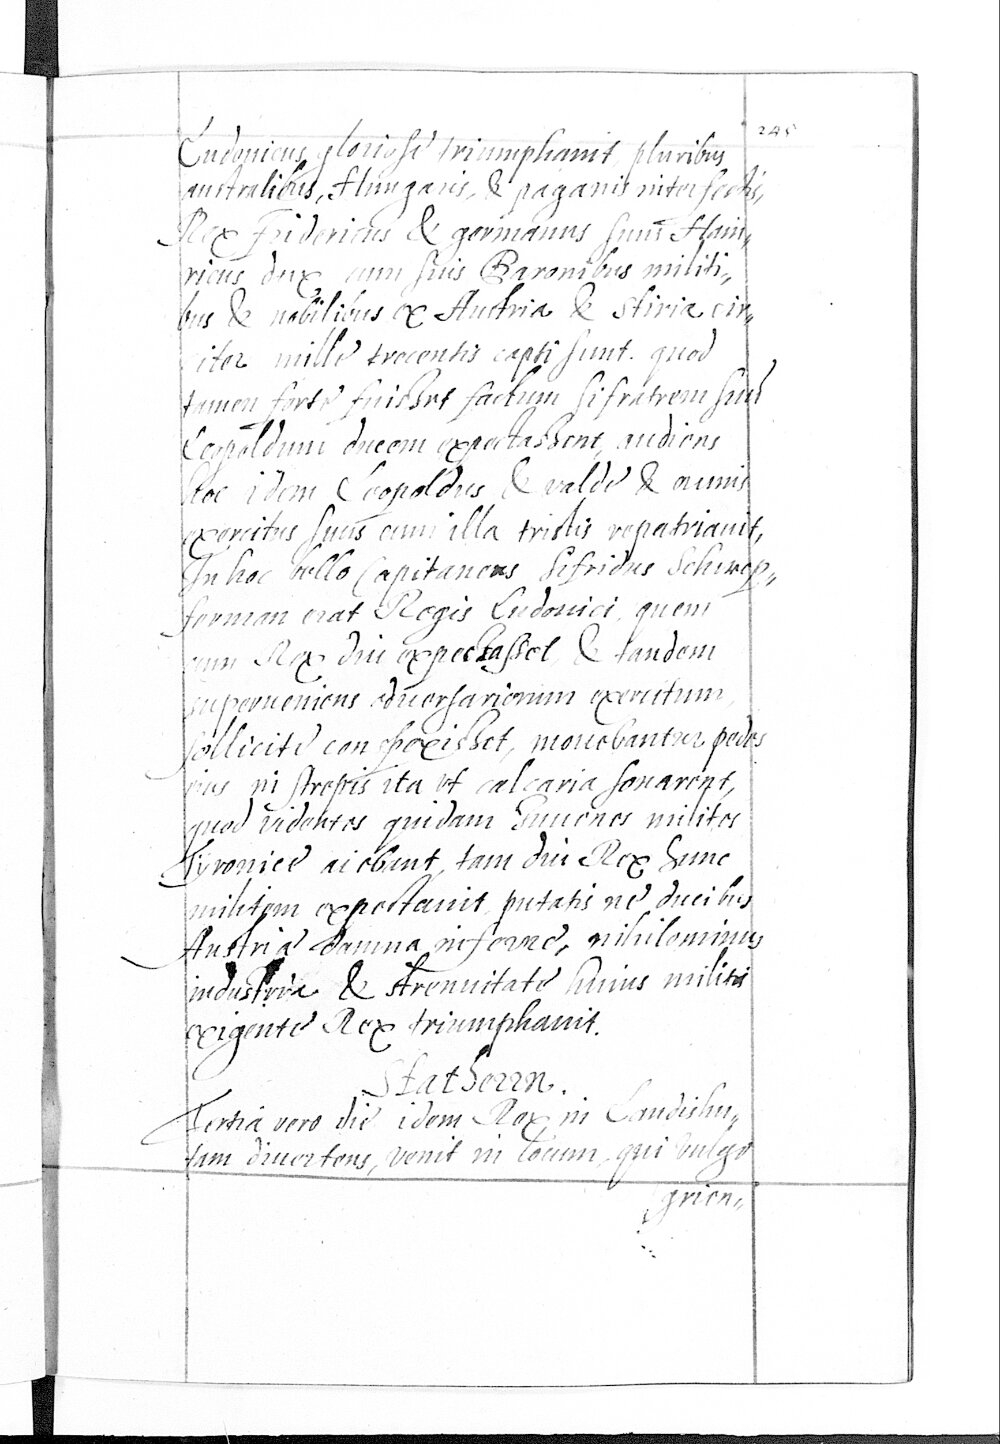 245
Ludouicus gloriosè triumphauit, pluribus
australibus, Hungaris, & paganis interfectis,
Rex Fridericus & germanus suus Hain„
ricus dux cum suis Baronibus militi„
bus & nobilibus ex Austria & Stiria cir„
citer mille trecentis capti sunt. quod
tamen fortè fuisset factum si fratrem suū
Leopoldum ducem expectassent, audiens
hoc idem Leopoldus & valdè & omnis
exercitus suus cum illa tristis repatriauit,
In hoc bello Capitaneus Sifridus Schwep„
ferman erat Regis Ludouici, quem
cum Rex diu expectasset, & tandem
superueniens aduersariorum exercitum,
sollicitè conspexisset, mouebantur pedes
eius in strepis ita vt calcaria sonarent,
quod videntes quidam Iuuenes milites
Tyronicè aiebant, tam diu Rex hunc
militem expectauit, putatis ne ducibus
Austriæ damna inferre, nihilominus
industria & strenuitate huius militis
exigente Rex triumphauit.
Hatherrn.
Tertia vero die idem Rex in Landishu„
tam diuertens, venit in locum, qui vulgo
grien„